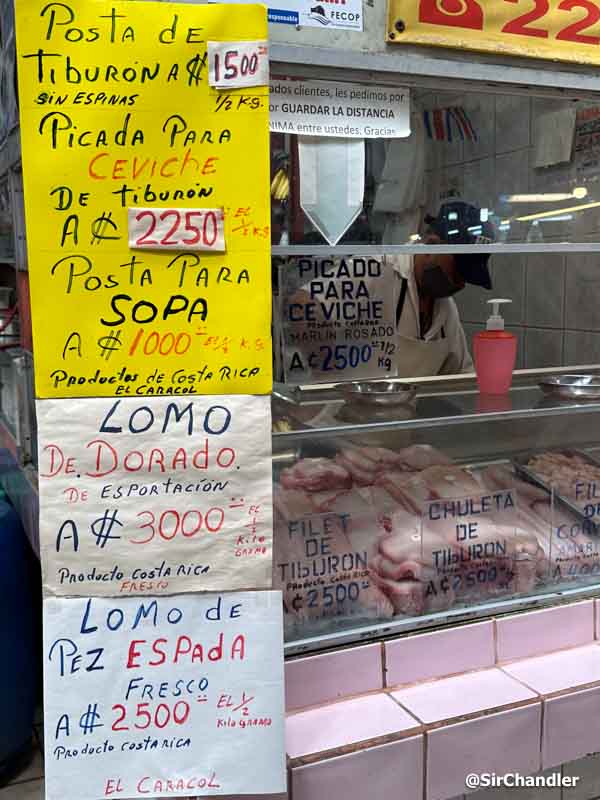 Posta de
Tiburón A ₡ 1500
sin Espinas 1/2 KG.
Picada Para
Ceviche
De tiburón
A ₡ 2250 El 1/2 KG
Posta Para
SOPA
A ₡ 1000 El 1/2 KG.
Productos de Costa Rica
El Caracol
LOMO
De. Dorado.
De Esportación
A ₡ 3000 El 1/2 Kilo gramo
Producto Costa Rica
Fresco
Lomo de
Pez Espada
Fresco
A ₡ 2500 El 1/2 Kilogramo
Producto costa Rica
El Caracol
responsable
FECOP
22
ados clientes, les pedimos por
or GUARDAR LA DISTANCIA
NIMA entre ustedes. Gracias
PICADO
PARA
CEVICHE
Producto Costa Rica
MARLIN ROSADO
A ₡ 2500 1/2 KG
FILET
DE
TIBURON
Producto Costa Rica
A ₡ 2500
CHULETA
DE
TIBURON
Producto Costa Rica
A ₡ 2500
FIL
DE
@SirChandler